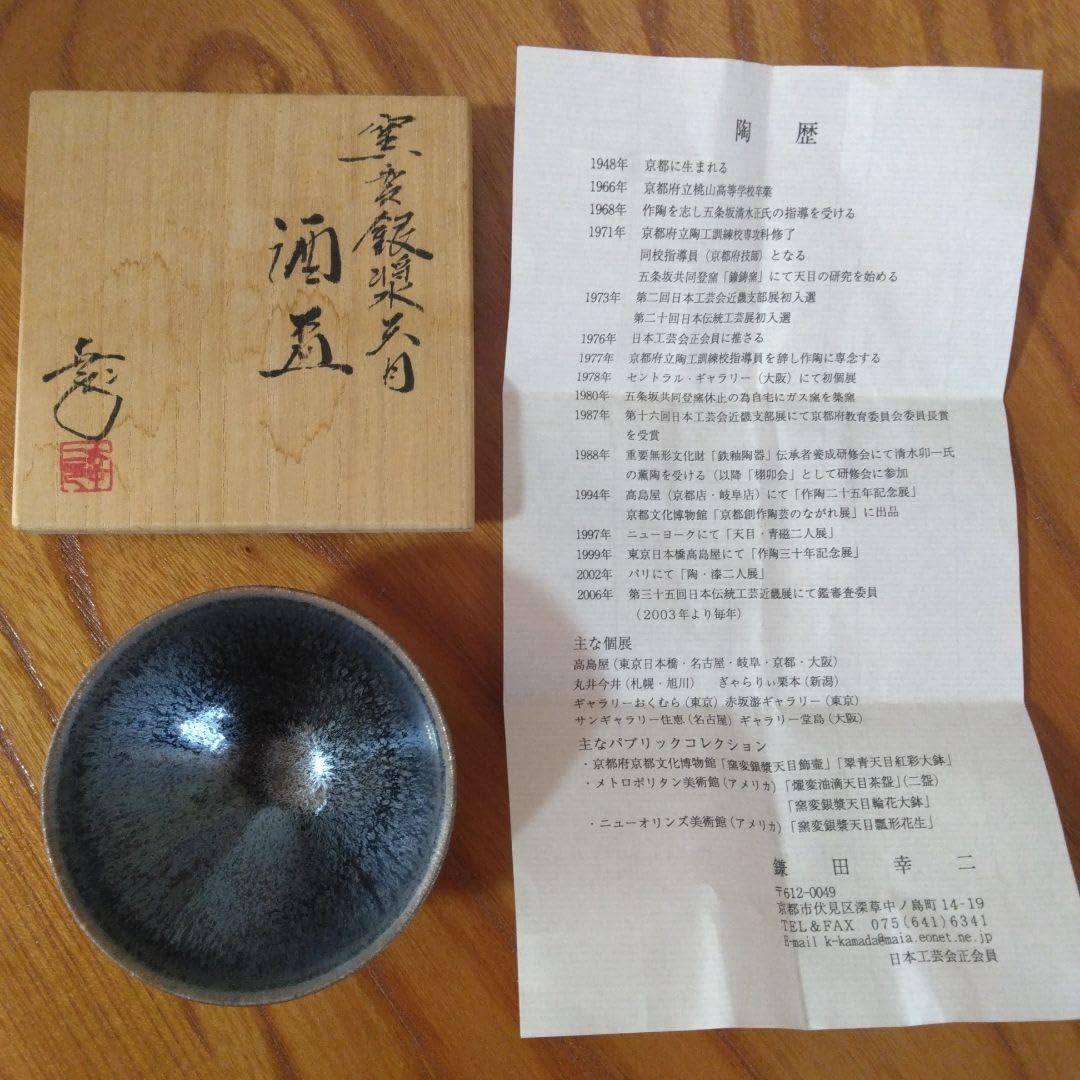 窯変銀漿天目
酒盃
幸
陶歴
1948年 京都に生まれる
1966年 京都府立桃山高等学校卒業
1968年 作陶を志し五条坂清水正氏の指導を受ける
1971年 京都府立陶工訓練校専攻科修了
同校指導員(京都府技師)となる
五条坂共同登窯「鐘鋳窯」にて天目の研究を始める
1973年 第二回日本工芸会近畿支部展初入選
第二十回日本伝統工芸展初入選
1976年 日本工芸会正会員に推さる
1977年 京都府立陶工訓練校指導員を辞し作陶に専念する
1978年 セントラル・ギャラリー(大阪)にて初個展
1980年 五条坂共同登窯休止の為自宅にガス窯を築窯
1987年 第十六回日本工芸会近畿支部展にて京都府教育委員会委員長賞
を受賞
1988年 重要無形文化財「鉄釉陶器」伝承者養成研修会にて清水卯一氏
の薫陶を受ける(以降「栩卯会」として研修会に参加
1994年 高島屋(京都店・岐阜店)にて「作陶二十五年記念展」
京都文化博物館「京都創作陶芸のながれ展」に出品
1997年 ニューヨークにて「天目・青磁二人展」
1999年 東京日本橋高島屋にて「作陶三十年記念展」
2002年 パリにて「陶・漆二人展」
2006年 第三十五回日本伝統工芸近畿展にて鑑審査委員
(2003年より毎年)
主な個展
高島屋(東京日本橋・名古屋・岐阜・京都・大阪)
丸井今井(札幌・旭川) ぎゃらりぃ栗本(新潟)
ギャラリーおくむら(東京) 赤坂游ギャラリー(東京)
サンギャラリー住恵(名古屋) ギャラリー堂島(大阪)
主なパブリックコレクション
・京都府京都文化博物館「窯変銀漿天目飾壷」「翠青天目紅彩大鉢」
・メトロポリタン美術館(アメリカ)「燿変油滴天目茶盌」(二盌)
「窯変銀漿天目輪花大鉢」
・ニューオリンズ美術館(アメリカ)「窯変銀漿天目瓢形花生」
鎌田幸二
〒612-0049
京都市伏見区深草中ノ島町14-19
TEL&FAX 075(641)6341
E-mail k-kamada@maia.eonet.ne.jp
日本工芸会正会員